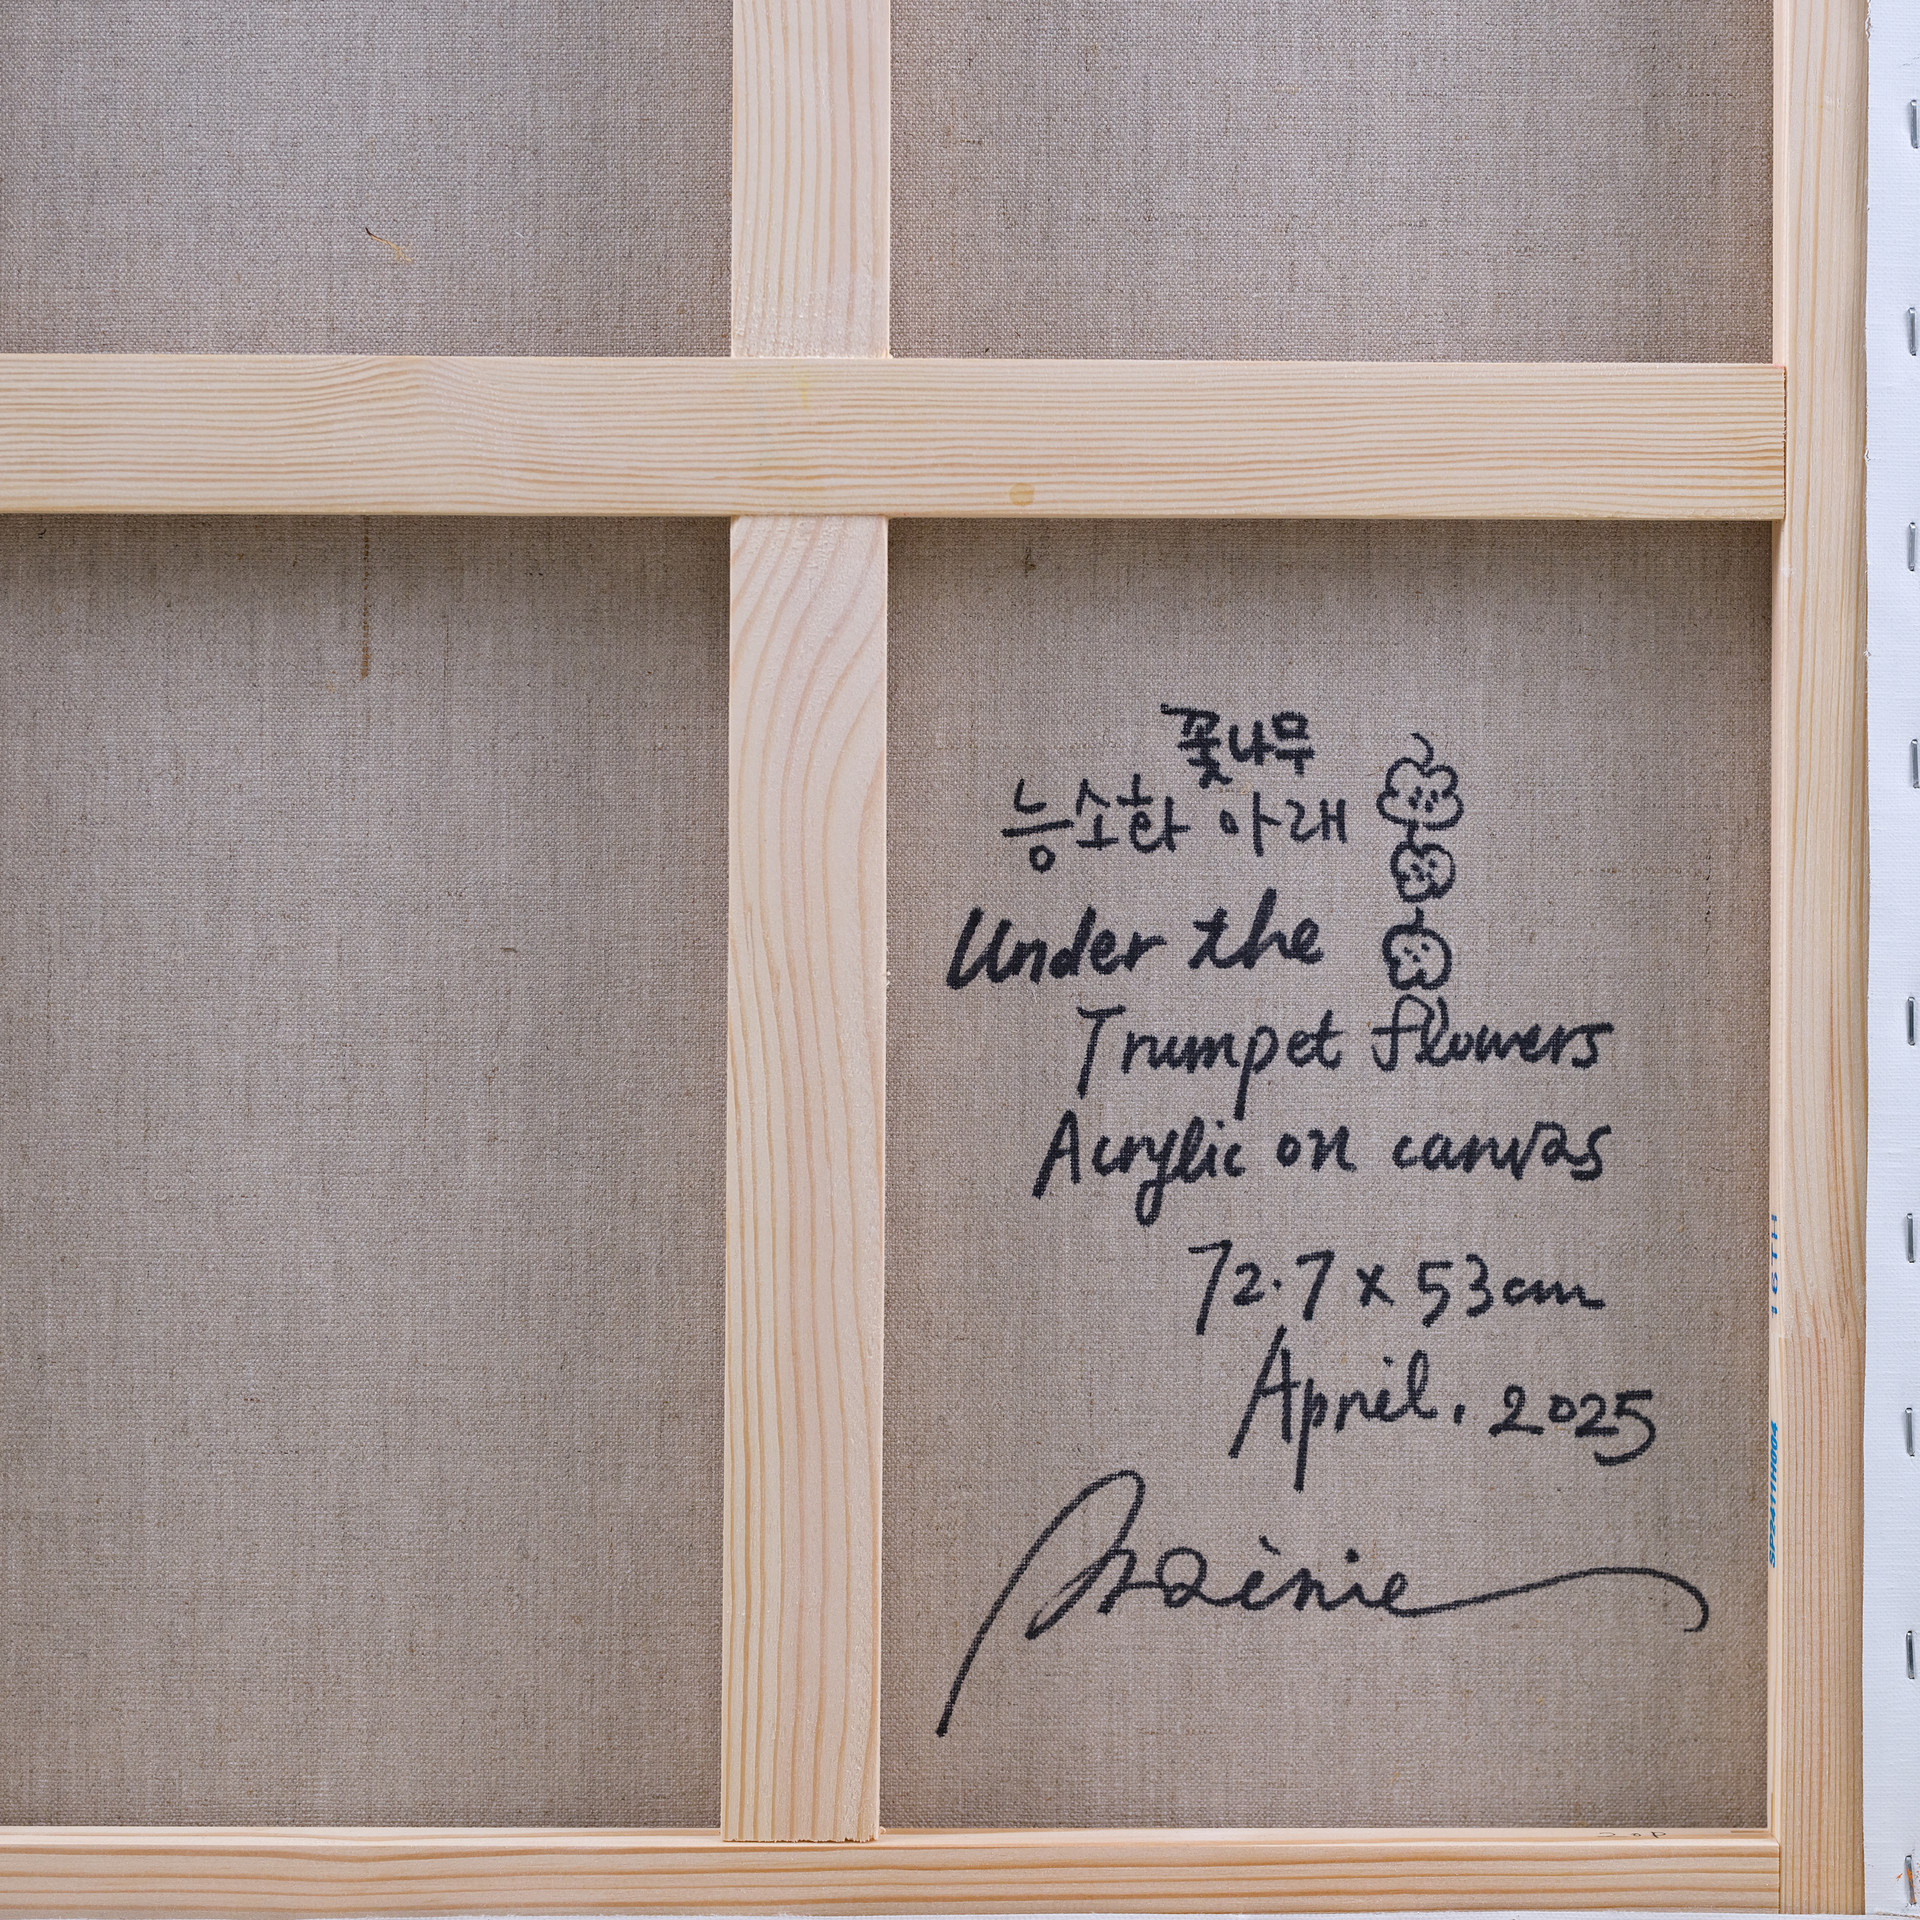 꽃나무
능소화 아래
Under the
Trumpet flowers
Acrylic on canvas
72.7 x 53cm
April. 2025
SP2411H004
20P